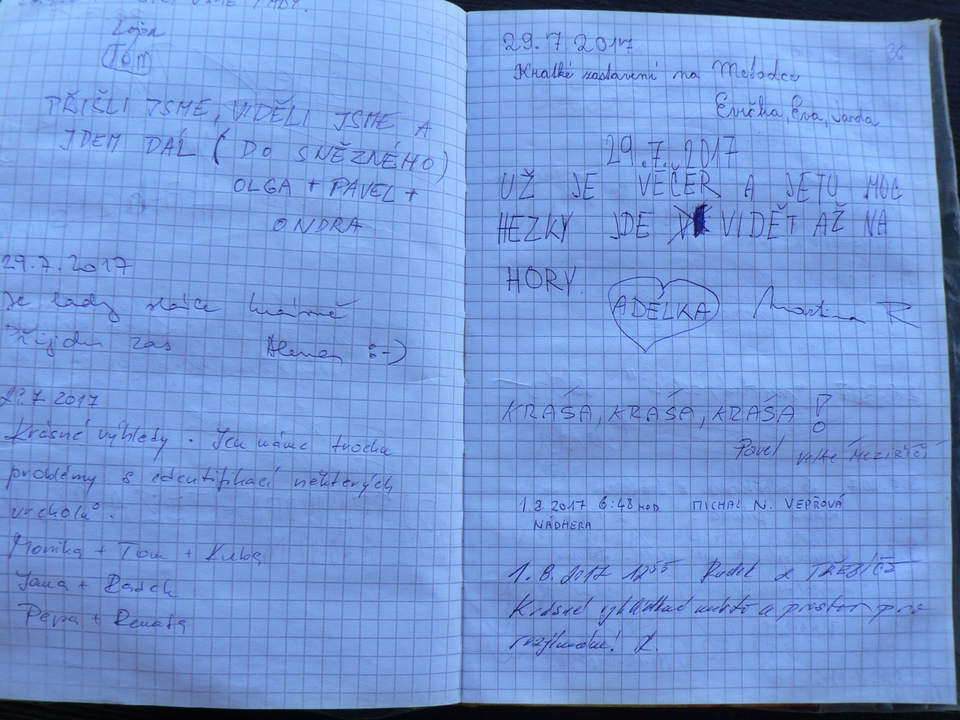 JSME TADY.
Lojza
TOM
PŘIŠLI JSME, VIDĚLI JSME A
JDEM DÁL (DO SNĚZNÉHO)
OLGA + PAVEL +
ONDRA
29.7.2017
Je tady krásně
Přijdu zas :-)
29.7.2017
Krásné výhledy. Jen máme trochu
problémy s identifikací některých
vrcholů.
Monika + Tom + Kuba
Jana + Radek
Pepa + Renata
36
29.7.2017
Krátké zastavení na
Evička, Eva, Jarda
29.7.2017
UŽ JE VEČER A JETU MOC
HEZKY JDE VIDĚT AŽ NA
HORY.
ADÉLKA Martina R
KRÁSA, KRÁSA, KRÁSA!
Pavel Velké MEZIŘÍČÍ
1.8.2017 6:48 HOD MICHAL N. VEPŘOVÁ
NÁDHERA
1.8.2017 12⁵⁵ z TŘEBÍČE
Krásné místo a prostor pro